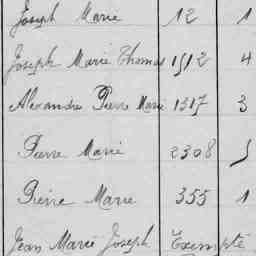 Joseph Marie 12 1
Joseph Marie Thomas 1912 4
Alexandre Pierre Marie 1317 3
Pierre Marie 2308 5
Pierre Marie 355 1
Jean Marie Joseph Exempté